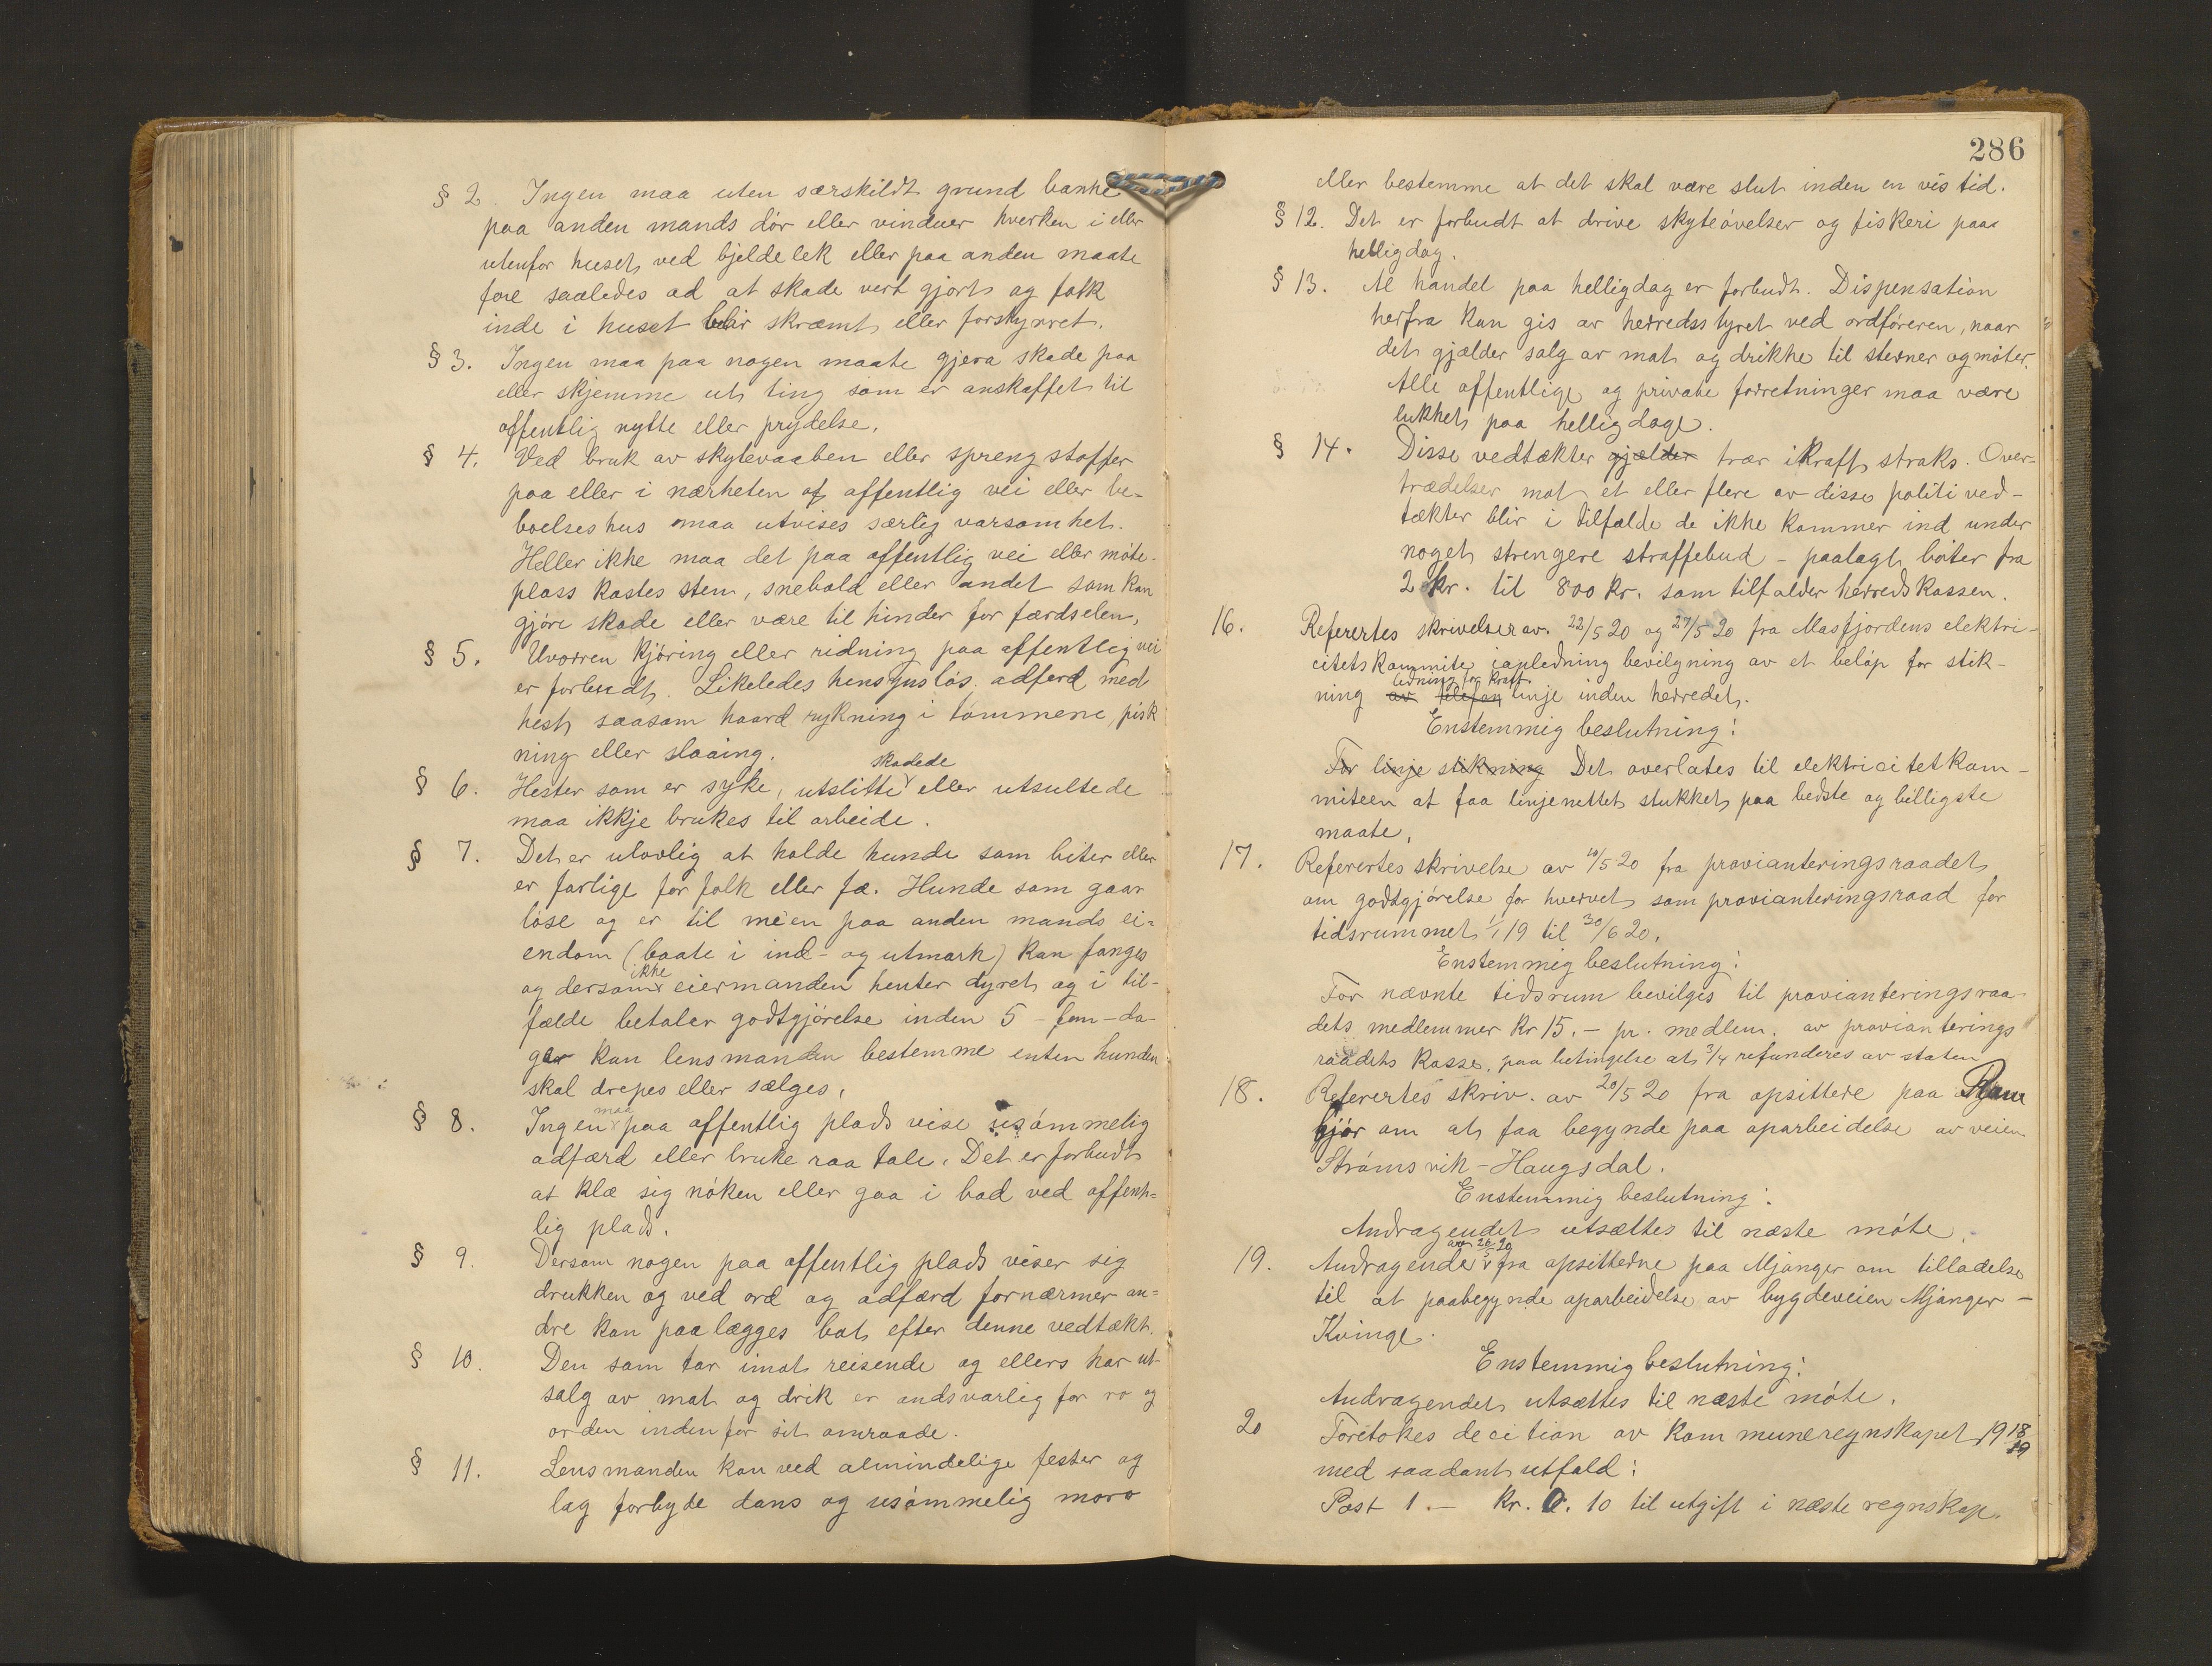 § 2. Ingen maa uten særskildt grund banke
paa anden mands dór eller vinduer hverken i eller
utenfor huset, ved bjeldelek eller paa anden maate
fare saaledes ad at skade vert gjort og folk
inde i huset blir skræmt eller forstyrret.
§ 3. Ingen maa paa nogen maate gjera skade paa
eller skjemme ut ting som er anskaffet til
offentlig nytte eller prydelse.
§ 4. Ved bruk av skytevaaben eller sprengstoffer
paa eller i nærheten af offentlig vei eller be-
boelseshus maa utvises særlig varsomhet.
Heller ikke maa det paa offentlig vei eller móte-
plass kastes sten, snebold eller andet som kan
gjóre skade eller være til hinder for færdselen.
§ 5. Uvorren kjóring eller ridning paa offentlig vei
er forbudt. Likeledes hensynslós adferd med
hest saasom haard rykning i tómmene, pisk
ning eller slaaing.
skadede
§ 6. Hester som er syke, utslitte eller utsultede
maa ikkje brukes til arbeide.
§ 7. Det er ulovlig at holde hunde som biter eller
er farlige for folk eller fæ. Hunde som gaar
lóse og er til méen paa anden mands ei-
endom (baate i ind- og utmark) kan fanges
ikke
og dersom eiermanden henter dyret og i til-
fælde betaler godtgjórelse inden 5 - fem - da-
ger kan lensmanden bestemme enten hunden
skal drepes eller sælges.
maa
§ 8. Ingen paa offentlig plads vise usómmelig
adfærd eller bruke raa tale. Det er forbudt
at klæ sig nóken eller gaa i bad ved offent-
lig plads.
§ 9. Dersom nogen paa offentlig plads viser sig
drukken og ved ord og adfærd fornærmer an-
dre kan paalægges bot efter denne vedtækt.
§ 10. Den som tar imot reisende og ellers har ut-
salg av mat og drik er andsvarlig for ro og
orden indenfor sit omraade.
§ 11. Lensmanden kan ved almindelige fester og
lag forbyde dans og usómmelig moro
286
eller bestemme at det skal være slut inden en vis tid.
§ 12. Det er forbudt at drive skyteóvelser og fiskeri paa
helligdag.
§ 13. Al handel paa helligdag er forbudt. Dispensation
herfra kan gis av herredsstyret ved ordfóreren, naar
det gjælder salg av mat og drikke til stevner og móter.
Alle offentlige og private forretninger maa være
lukket paa helligdage.
§ 14. Disse vedtækter gjælder trær i kraft straks. Over-
trædelser mot et eller flere av disse politived-
tækter blir i tilfælde de ikke kommer ind under
noget strengere straffebud - paalagt bóter fra
2 kr. til 800 kr. som tilfalder herredskassen.
16. Referertes skrivelser av. 22/5 20 og 27/5 20 fra Masfjordens elektri-
citetskommite i anledning bevilgning av et belóp for stik-
ledning for kraft
ning av telefon linje inden herredet.
Enstemmig beslutning:
For linje stikning Det overlates til elektricitetkom-
miteen at faa linjenettet stukket paa bedste og billigste
maate.
17. Referertes skrivelse av 10/5 20 fra provianteringsraadet
om godtgjórelse for hvervet som provianteringsraad for
tidsrummet 1/1 19 til 30/6 20.
Enstemmig beslutning:
For nævnte tidsrum bevilges til provianteringsraa-
dets medlemmer kr 15.- pr. medlem. av provianterings
raadets kasse, paa betingelse at 3/4 refunderes av staten
18. Referertes skriv. av 20/5 20 fra opsittere paa
om at faa begynde paa oparbeidelse av veien
Strómsvik - Haugsdal.
Enstemmig beslutning:
Andragendet utsættes til næste móte.
av 26/5 20
19. Andragende fra opsitterne paa Mjanger om tilladelse
til at paabegynde oparbeidelse av bygdeveien Mjanger -
Kvinge.
Enstemmig beslutning:
Andragendet utsættes til næste móte.
20 Foretokes decition av kommuneregnskapet 1918/19
med saadant utfald:
Post 1. - Kr. 0. 10 til utgift i næste regnskap.